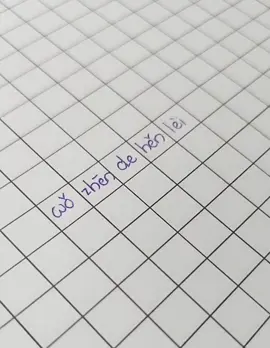 wǒ zhēn de hěn lèi